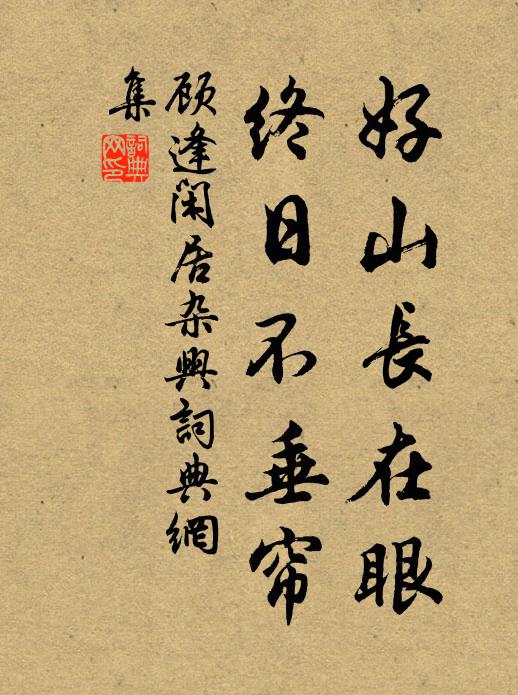 好山長在眼
終日不垂帘
顾逢閑居杂興詞典網
集
詞典
网印